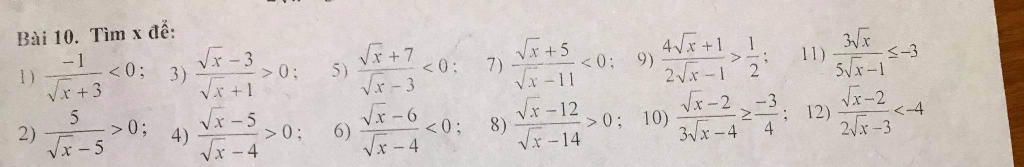 Bài 10. Tìm x để:
1) \frac{-1}{\sqrt{x}+3} < 0; 3) \frac{\sqrt{x}-3}{\sqrt{x}+1} > 0; 5) \frac{\sqrt{x}+7}{\sqrt{x}-3} < 0; 7) \frac{\sqrt{x}+5}{\sqrt{x}-11} < 0; 9) \frac{4\sqrt{x}+1}{2\sqrt{x}-1} > \frac{1}{2}; 11) \frac{3\sqrt{x}}{5\sqrt{x}-1} ≤ -3
2) \frac{5}{\sqrt{x}-5} > 0; 4) \frac{\sqrt{x}-5}{\sqrt{x}-4} > 0; 6) \frac{\sqrt{x}-6}{\sqrt{x}-4} < 0; 8) \frac{\sqrt{x}-12}{\sqrt{x}-14} > 0; 10) \frac{\sqrt{x}-2}{3\sqrt{x}-4} ≥ \frac{-3}{4}; 12) \frac{\sqrt{x}-2}{2\sqrt{x}-3} < -4